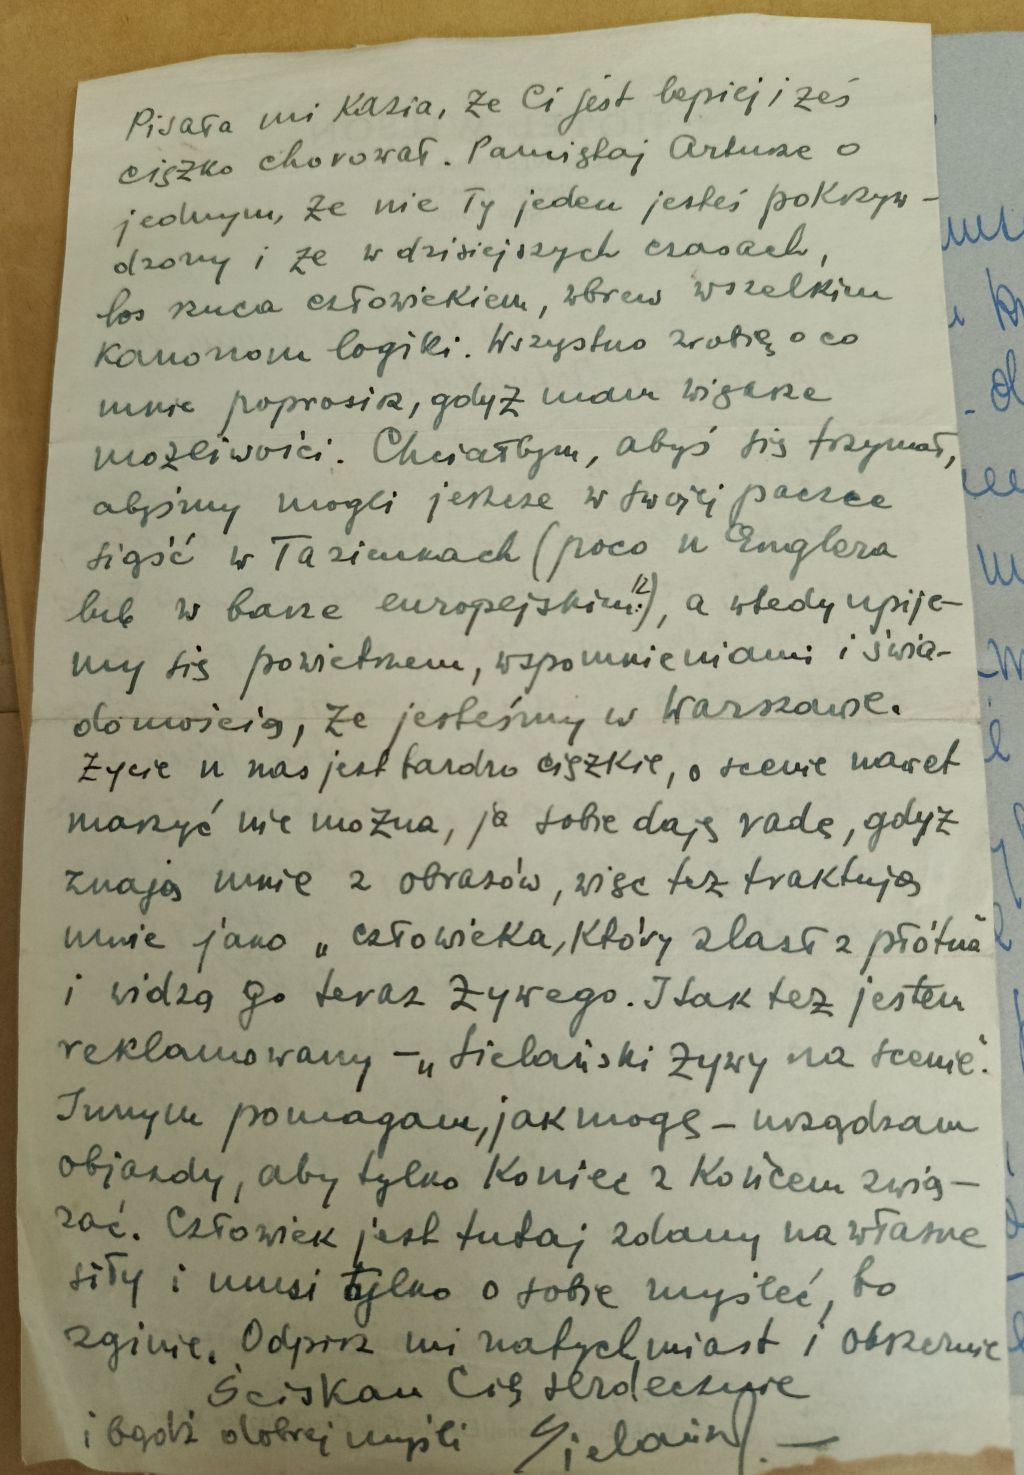 Pisała mi Kazia, że Ci jest lepiej i żeś
ciężko chorował. Pamiętaj Arturze o
jednym, że nie Ty jeden jesteś pokrzyw-
dzony i że w dzisiejszych czasach,
los rzuca człowiekiem, wbrew wszelkim
kanonom logiki. Wszystko zrobię o co
mnie poprosisz, gdyż mam większe
możliwości. Chciałbym, abyś się trzymał,
abyśmy mogli jeszcze w swojej paczce
siąść w Łazienkach (poco u Englera
lub w barze europejskim!?), a wtedy upije-
my się powietrzem, wspomnieniami i świa-
domością, że jesteśmy w Warszawie.
Życie u nas jest bardzo ciężkie, o scenie nawet
marzyć nie można, ja sobie daję radę, gdyż
znają mnie z obrazów, więc też traktują
mnie jako „człowieka, który zlazł z płótna"
i widzą go teraz żywego. I tak też jestem
reklamowany – „Sielański żywy na scenie".
Innym pomagam, jak mogę – urządzam
objazdy, aby tylko koniec z końcem zwią-
zać. Człowiek jest tutaj zdany na własne
siły i musi tylko o sobie myśleć, bo
zginie. Odpisz mi natychmiast i obszernie
Ściskam Cię serdecznie
i bądź dobrej myśli Sielański. –